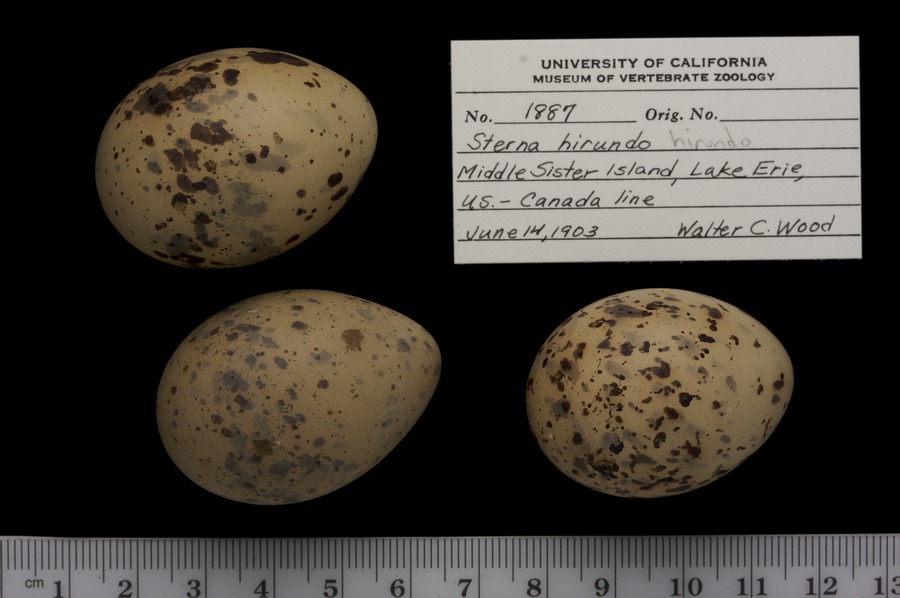 UNIVERSITY OF CALIFORNIA
MUSEUM OF VERTEBRATE ZOOLOGY
No. 1887 Orig. No.
Sterna hirundo hirundo
Middle Sister Island, Lake Erie,
U.S. - Canada line
June 14, 1903 Walter C. Wood
cm 1 2 3 4 5 6 7 8 9 10 11 12 13